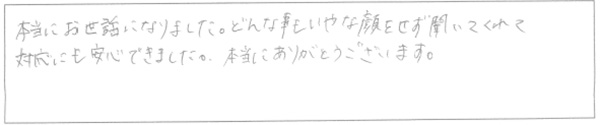 本当にお世話になりました。どんな事もいやな顔をせず聞いてくれて
対応にも安心できましたか、本当にありがとうございます。